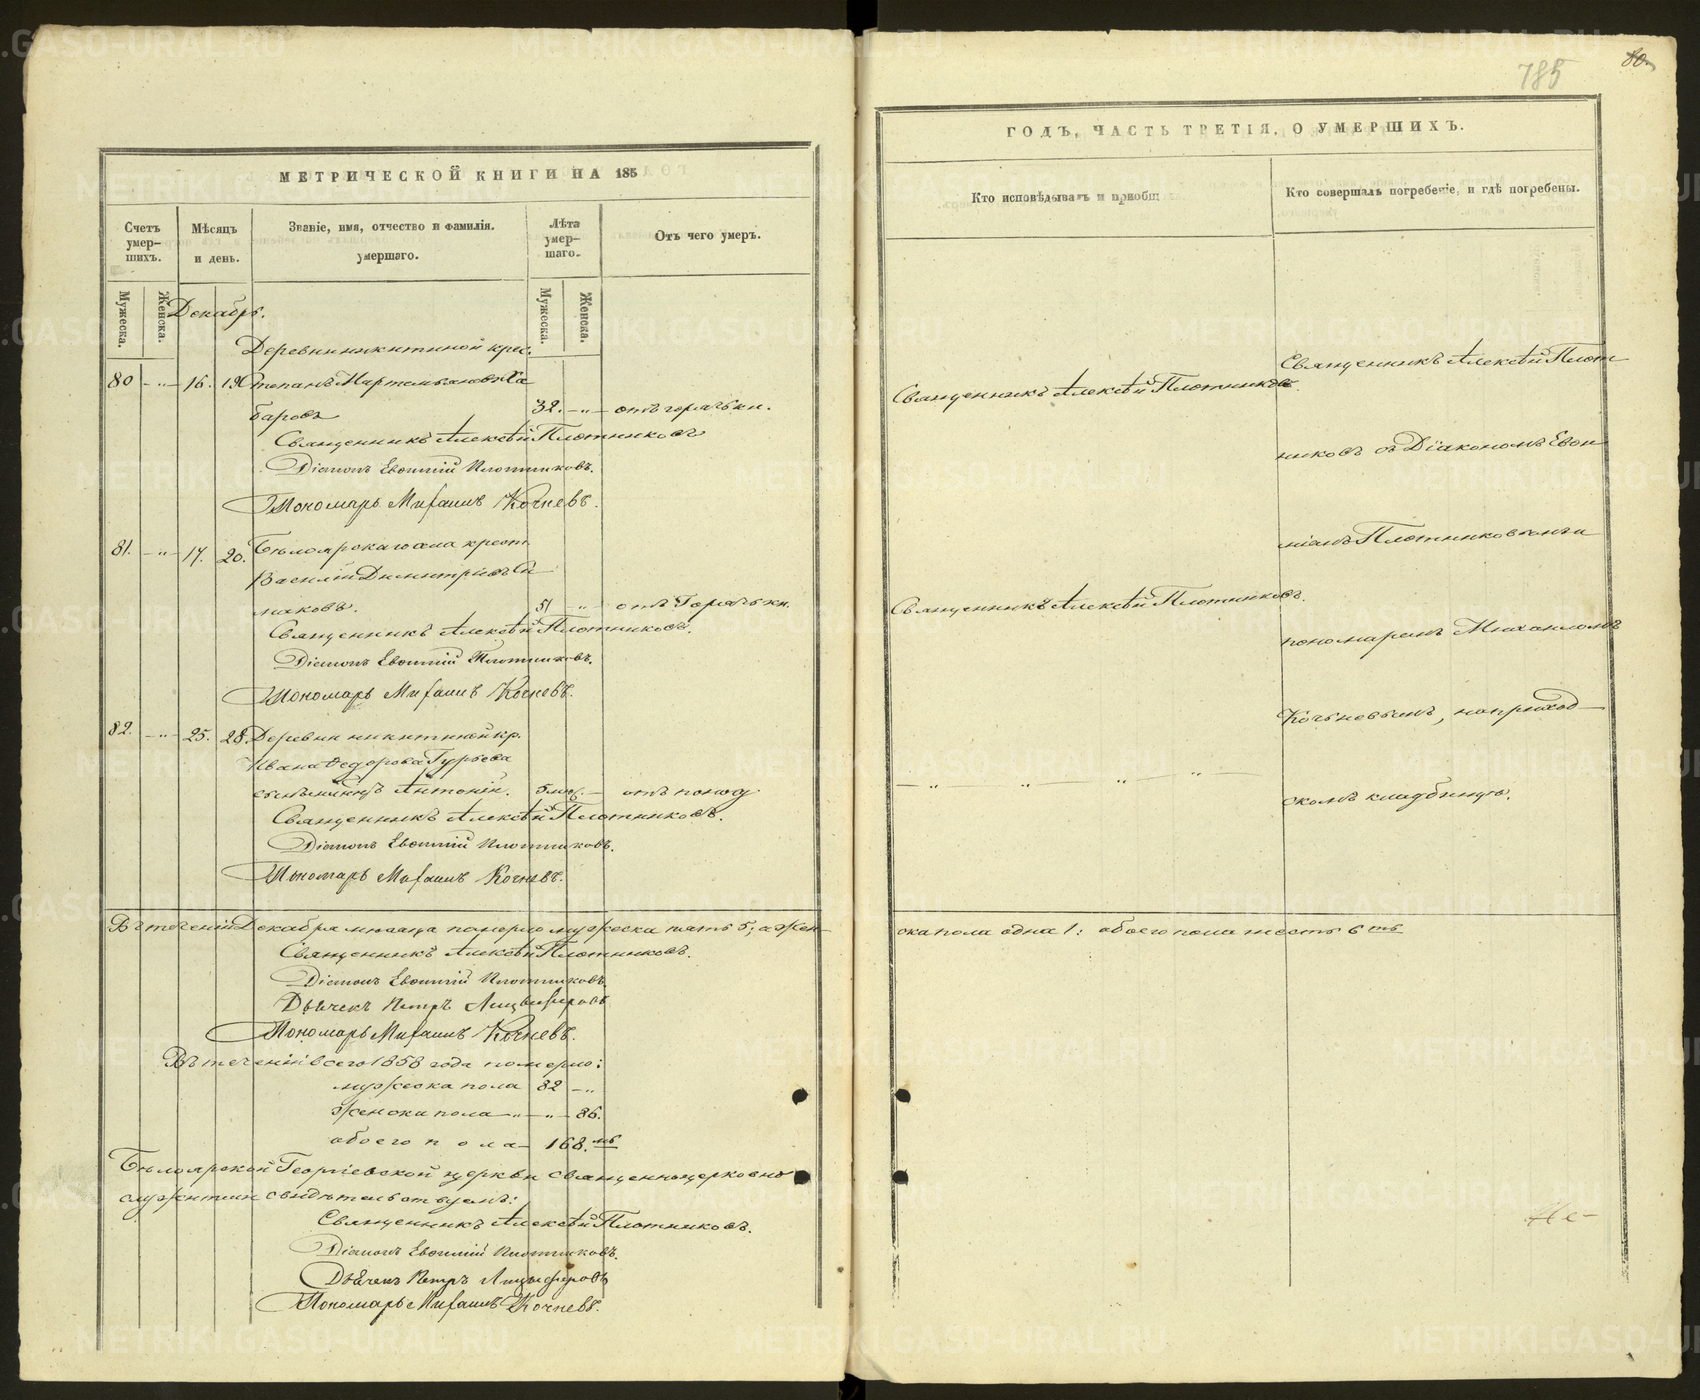 785
80
МЕТРИЧЕСКОЙ КНИГИ НА 185
Счетъ умер-
шихъ.
Мѣсяцъ
и день.
Званіе, имя, отчество и фамилія.
умершаго.
Лѣта
умер-
шаго.
Отъ чего умеръ.
Мужеска.
Женска.
Мужеска.
Женска.
Декабрь.
Деревни Никитиной крес.
80 - " - 16. 19. Степанъ Мартемьяновъ Ха
баровъ 32. - " - отъ горячки.
Священникъ Алексѣй Плотниковъ
Діаконъ Евѳимій Плотниковъ.
Пономарь Михаилъ Кочневъ.
81. - " - 17. 20. Бѣлоярскаго села крест.
Василій Димитріевъ
маковъ. 51 - " - отъ Горячки.
Священникъ Алексѣй Плотниковъ.
Діаконъ Евѳимій Плотниковъ.
Пономарь Михаилъ Кочневъ.
82. - " - 25. 28. Деревни Никитиной кр.
Ивана Ѳедорова Гурьева
сынъ Антоній. 5 отъ
Священникъ Алексѣй Плотниковъ.
Діаконъ Евѳимій Плотниковъ.
Пономарь Михаилъ Кочневъ.
Въ теченіи Декабря мѣсяца померло мужеска пять 5; а жен-
Священникъ Алексѣй Плотниковъ.
Діаконъ Евѳимій Плотниковъ.
Дьячекъ Петръ
Пономарь Михаилъ Кочневъ.
Въ теченіи всего 1858 года померло:
мужеска пола 82 - "
женска пола - " - " - 86.
обоего пола - 168.
Бѣлоярской Георгіевской церкви священноцерковно
служители свидѣтельствуемъ:
Священникъ Алексѣй Плотниковъ.
Діаконъ Евѳимій Плотниковъ.
Дьячекъ Петръ
Пономарь Михаилъ Кочневъ.
ГОДЪ, ЧАСТЬ ТРЕТІЯ, О УМЕРШИХЪ.
Кто исповѣдывалъ и пріобщ
Кто совершалъ погребеніе, и гдѣ погребены.
Священникъ Алексѣй Плотниковъ.
Священникъ Алексѣй Плотниковъ.
Священникъ Алексѣй Плот
никовъ съ Діакономъ Евѳи
міемъ Плотниковымъ и
пономаремъ Михаиломъ
Кочьневымъ, на приход
скомъ кладбищѣ.
ска пола одна 1: обоего пола шесть 6ть
Не-
METRIKI.GASO-URAL.RU